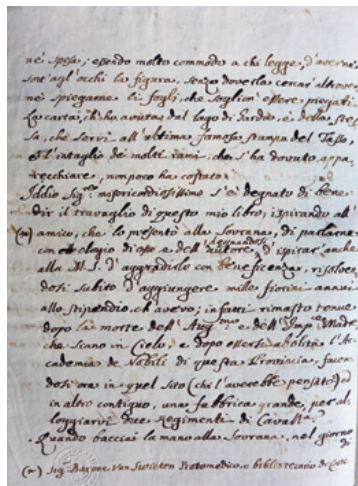 nè spesa; essendo molto commodo a chi legge, d'averne
sott'agl'occhi la figura, senza doverla cercar'altrove,
nè spiegarne li fogli, che soglion'essere piegati.
La carta, ch'ho avuta dal lago di Garda, è della stes-
sa, che servì all'ultima famosa stampa del Tasso,
e l'intaglio de' molti rami, che s'ha dovuto appa-
recchiare, non poco ha costato.
Iddio Sig.re misericordiosissimo s'è degnato di bene-
dir il travaglio di questo mio libro, ispirando all'
(*) amico, che lo presentò alla Sovrana, di parlarne
con elogio di esso e dell'autore, degnandosi d'ispirar'anche
alla M. S. d'aggradirlo con beneficenza, risolven-
dosi subito d'aggiungere mille fiorini annui
allo stipendio, ch'avevo; infatti rimasto tenue
dopo la morte dell'Aug.mo e dell'Imp.le Madre
che siano in Cielo, e dopo essersi abolita l'Ac-
cademia de Nobili di questa Provincia, facen-
dosi ora in quel sito (chi l'averebbe pensato?) ed
in altro contiguo, una fabbrica grande, per al-
loggiarvi due Regimenti di Cavall.a
Quando bacciai la mano alla Sovrana, nel giorno
di
(*) Sig. Barone Van Swieten Protomedico, e bibliotecario di Corte